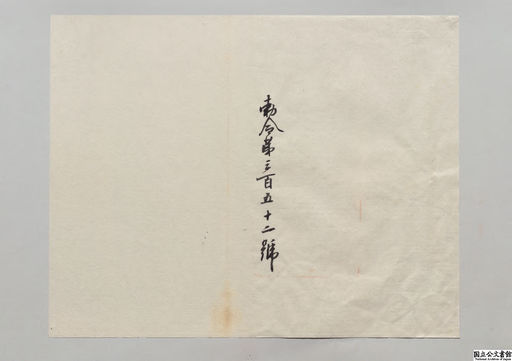 勅令第三百五十二號
国立公文書館
National Archives of Japan